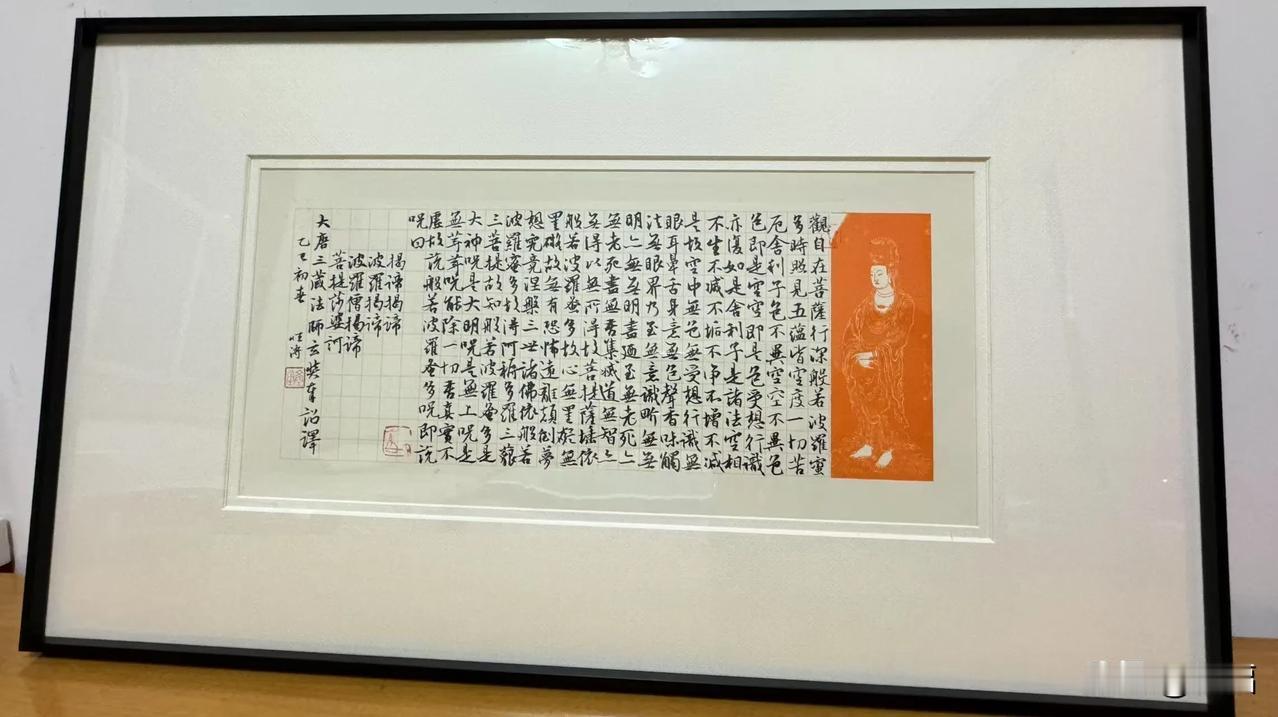 觀自在菩薩行深般若波羅蜜
多時照見五蘊皆空度一切苦
厄舍利子色不異空空不異色
色即是空空即是色受想行識
亦復如是舍利子是諸法空相
不生不滅不垢不淨不增不減
是故空中無色無受想行識無
眼耳鼻舌身意無色聲香味觸
法無眼界乃至無意識界無無
明亦無無明盡乃至無老死亦
無老死盡無苦集滅道無智亦
無得以無所得故菩提薩埵依
般若波羅蜜多故心無罣礙無
罣礙故無有恐怖遠離顛倒夢
想究竟涅槃三世諸佛依般若
波羅蜜多故得阿耨多羅三藐
三菩提故知般若波羅蜜多是
大神咒是大明咒是無上咒是
無等等咒能除一切苦真實不
虛故說般若波羅蜜多咒即說
咒曰
揭諦揭諦
波羅揭諦
波羅僧揭諦
菩提莎婆訶
大唐三藏法師玄奘奉詔譯
乙巳初春